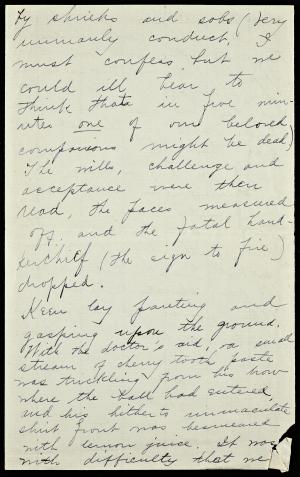 by shrieks and sobs (very
unmanly conduct, I
must confess, but we
could ill bear to
think that in five min-
utes one of our beloved
companions might be dead)
The wills, challenge and
acceptance were then
read, the paces measured
off, and the fatal hand-
kerchief (the sign to fire)
dropped.
Keen lay fainting and
gasping upon the ground.
With the doctor's aid, a small
stream of cherry tooth paste
was trickling from his brow
where the ball had entered,
and his hitherto immaculate
shirt front was besmeared
with lemon juice. It was
with difficulty that we